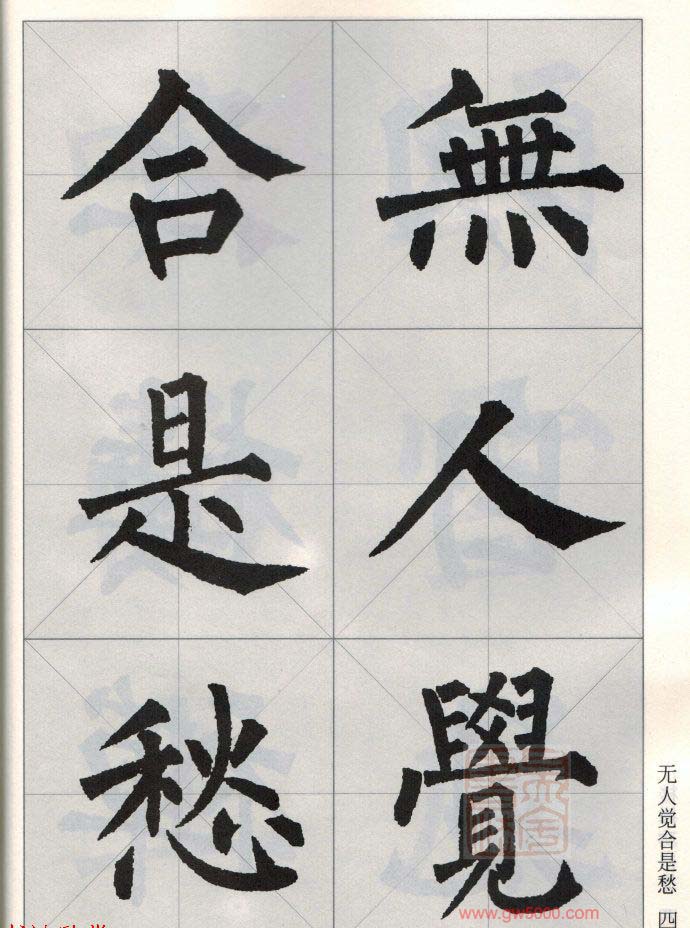 無人覺
合是愁
无人觉合是愁 四
www.gw5000.com